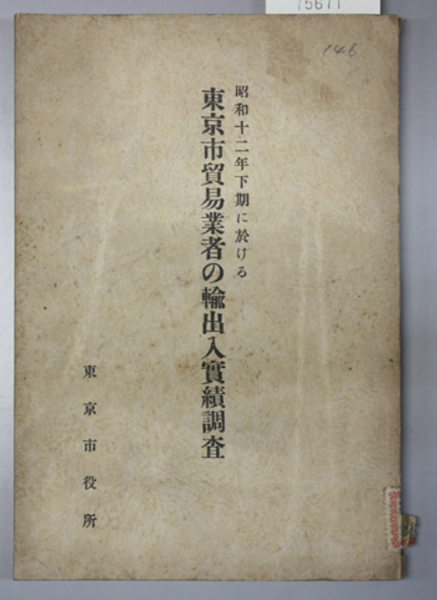 昭和十二年下期に於ける
東京市貿易業者の輸出入實績調査
東京市役所
146